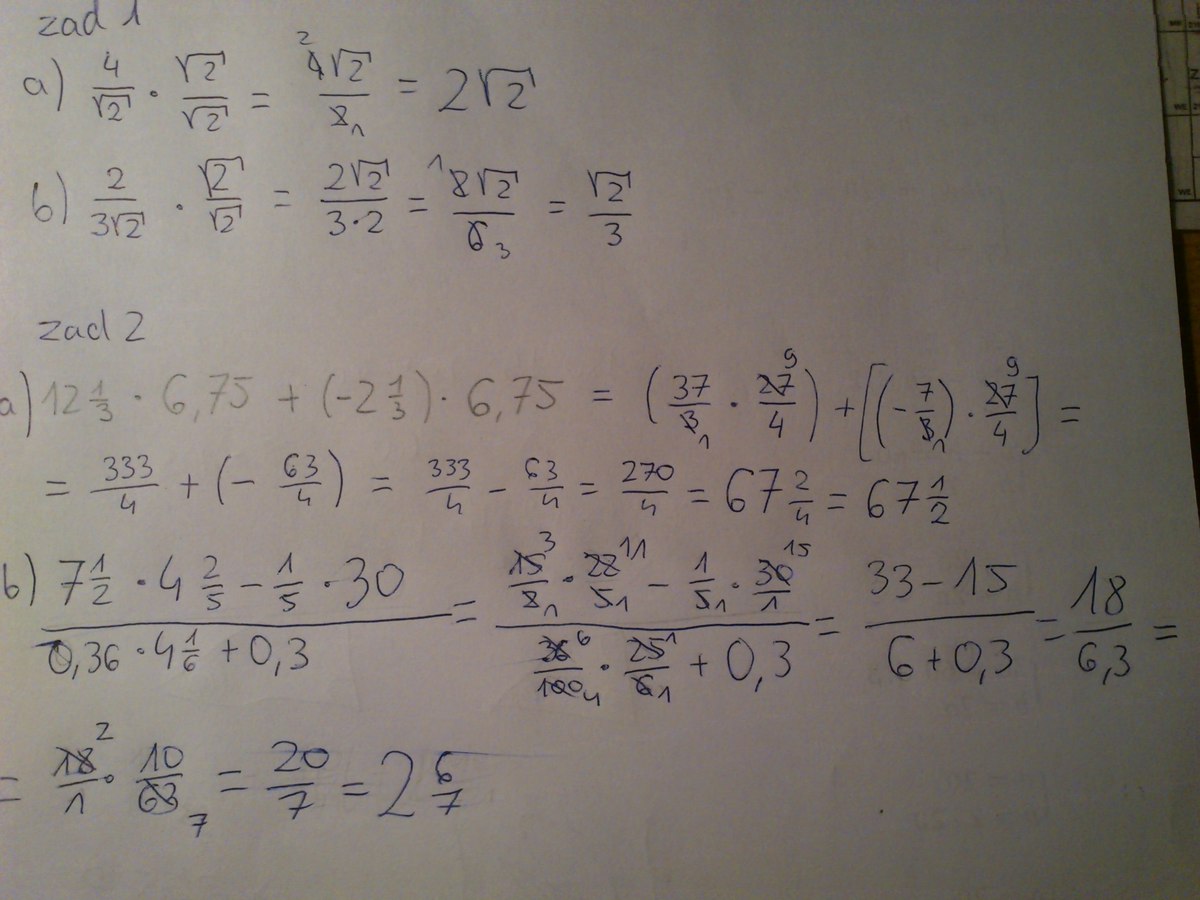 zad 1
a) 4/√2 · √2/√2 = 4√2/2 (2, 1) = 2√2
b) 2/3√2 · √2/√2 = 2√2/3·2 = 2√2/6 (1, 3) = √2/3
zad 2
a) 12 1/3 · 6,75 + (-2 1/3) · 6,75 = (37/3 (1) · 27 (9)/4) + [(-7/3 (1)) · 27 (9)/4] =
= 333/4 + (- 63/4) = 333/4 - 63/4 = 270/4 = 67 2/4 = 67 1/2
b) 7 1/2 · 4 2/5 - 1/5 · 30 / 0,36 · 4 1/6 + 0,3 = 15 (3)/2 (1) · 22 (11)/5 (1) - 1/5 (1) · 30 (15)/1 / 36 (6)/100 (4) · 25 (1)/6 (1) + 0,3 = 33-15 / 6+0,3 = 18/6,3 =
= 18 (2)/1 · 10/63 (7) = 20/7 = 2 6/7